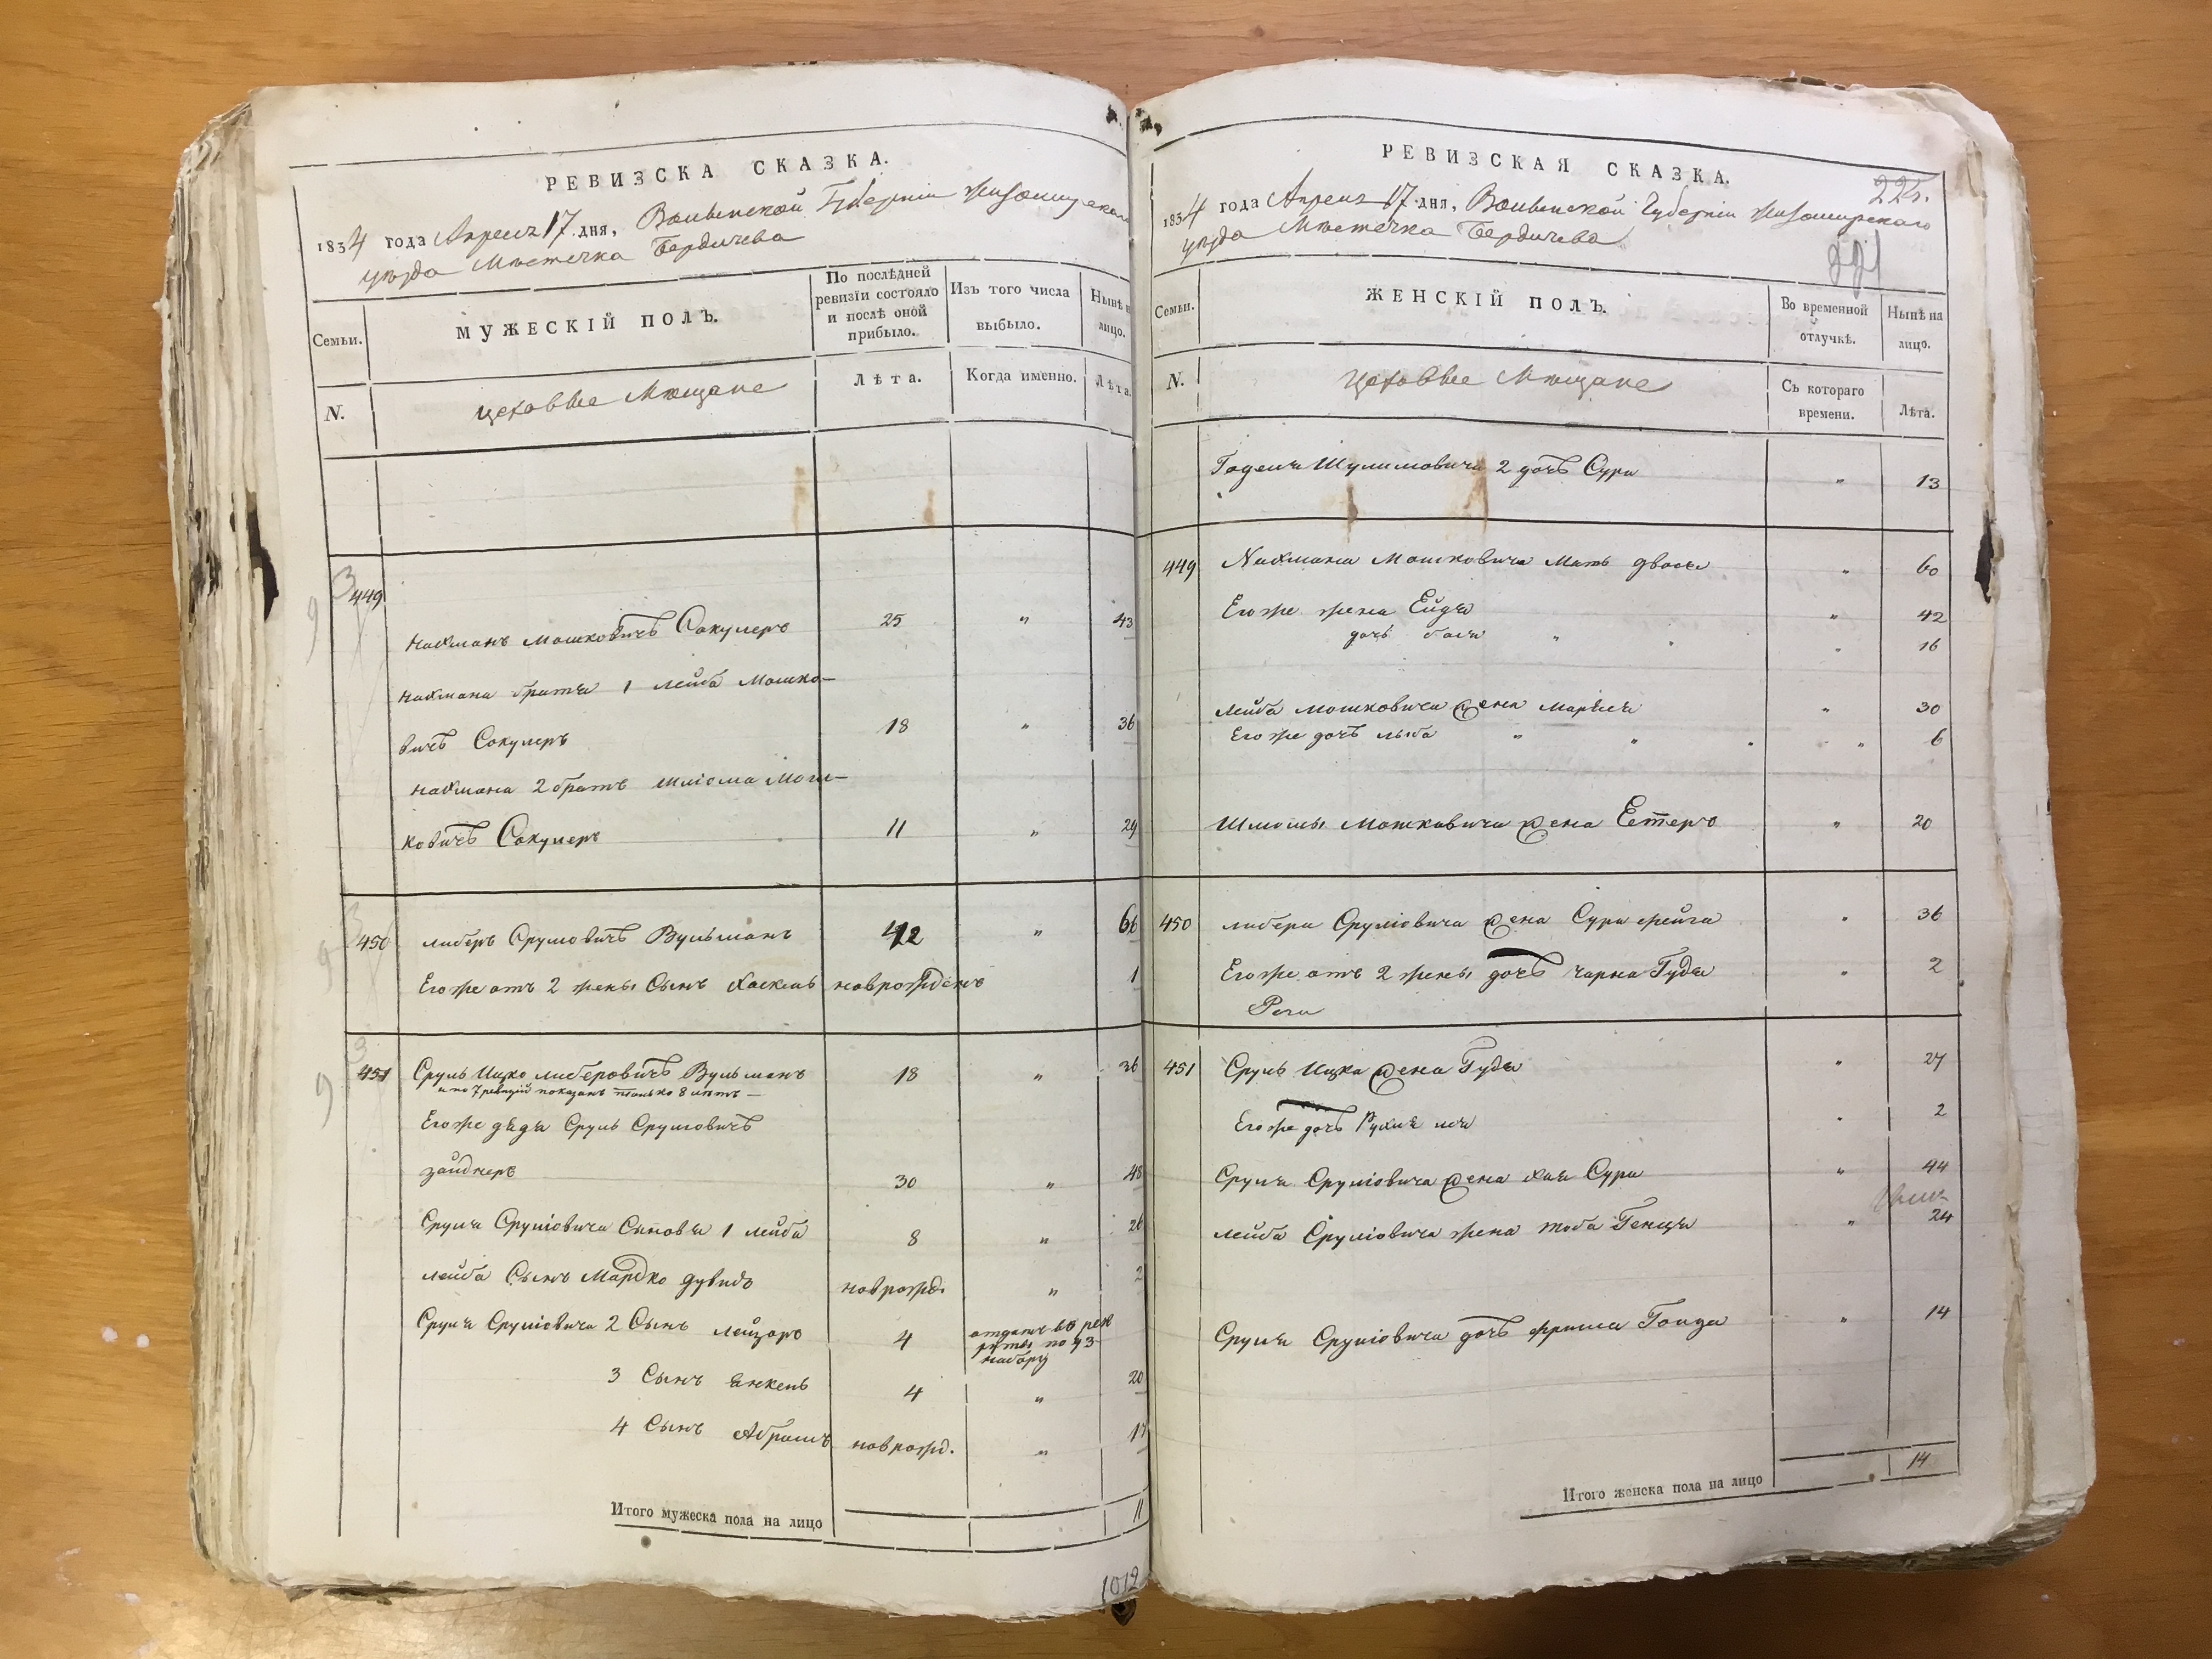 РЕВИЗСКА СКАЗКА.
1834 года Апреля 17 дня, Волынской Губернии Житомирскаго
уезда Местечка Бердичева
Семьи.
МУЖЕСКІЙ ПОЛЪ.
По послѣдней ревизіи состояло и послѣ оной прибыло.
Изъ того числа выбыло.
Нынѣ на лицо.
N.
цеховые Мещане
Лѣта.
Когда именно.
Лѣта.
449
Нахманъ Мошковичъ Сокулеръ 25 " 43
Нахмана братья 1 Лейба Мошко-
вичъ Сокулеръ 18 " 36
Нахмана 2 братъ Шлiома Мош-
ковичъ Сокулеръ 11 " 29
450 Либеръ Сруловичъ Вульманъ 42 " 66
Егоже отъ 2 жены Сынъ Хаскель новрожденъ 1
451 Сруль Ицко Либеровичъ Вульманъ 18 " 36
и по 7 ревизiй показанъ только 8 летъ —
Егоже дядя Сруль Сруловичъ
зайднеръ 30 " 48
Сруля Срулiовича Сыновья 1 Лейба 8 " 26
Лейба Сынъ Мордко Дувидъ новрожд. " 2
Сруля Срулiовича 2 Сынъ Лейзоръ 4 отданъ въ рек
руты по 93
набору
3 Сынъ Янкель 4 " 20
4 Сынъ Абрамъ новрожд. " 17
Итого мужеска пола на лицо 11
1012
РЕВИЗСКАЯ СКАЗКА.
225.
1834 года Апреля 17 дня, Волынской Губернiи Житомирскаго
уезда Местечка Бердичева
221
Семьи.
ЖЕНСКІЙ ПОЛЪ.
Во временной отлучкѣ.
Нынѣ на лицо.
N.
цеховые Мещане
Съ котораго времени.
Лѣта.
Годеля Шулимовича 2 дочь Сура " 13
449 Нахмана Мошковича Мать Двося " 60
Егоже жена Ейдя " 42
дочь бася " " " 16
Лейба Мошковича жена Марьяся " 30
Егоже дочь Либа " " " " 6
Шломы Мошковича жена Естеръ " 20
450 Либера Срулiовича жена Сура Фейга " 36
Егоже отъ 2 жены дочь Чарна Гудя " 2
451 Сруль Ицка жена Гудя " 27
Егоже дочь Рухля Лея " 2
Сруля Срулiовича жена Хая Сура " 44
Лейба Срулiовича жена Тоба Генця " 24
Сруля Срулiовича дочь Фрима Голда " 14
Итого женска пола на лицо 14